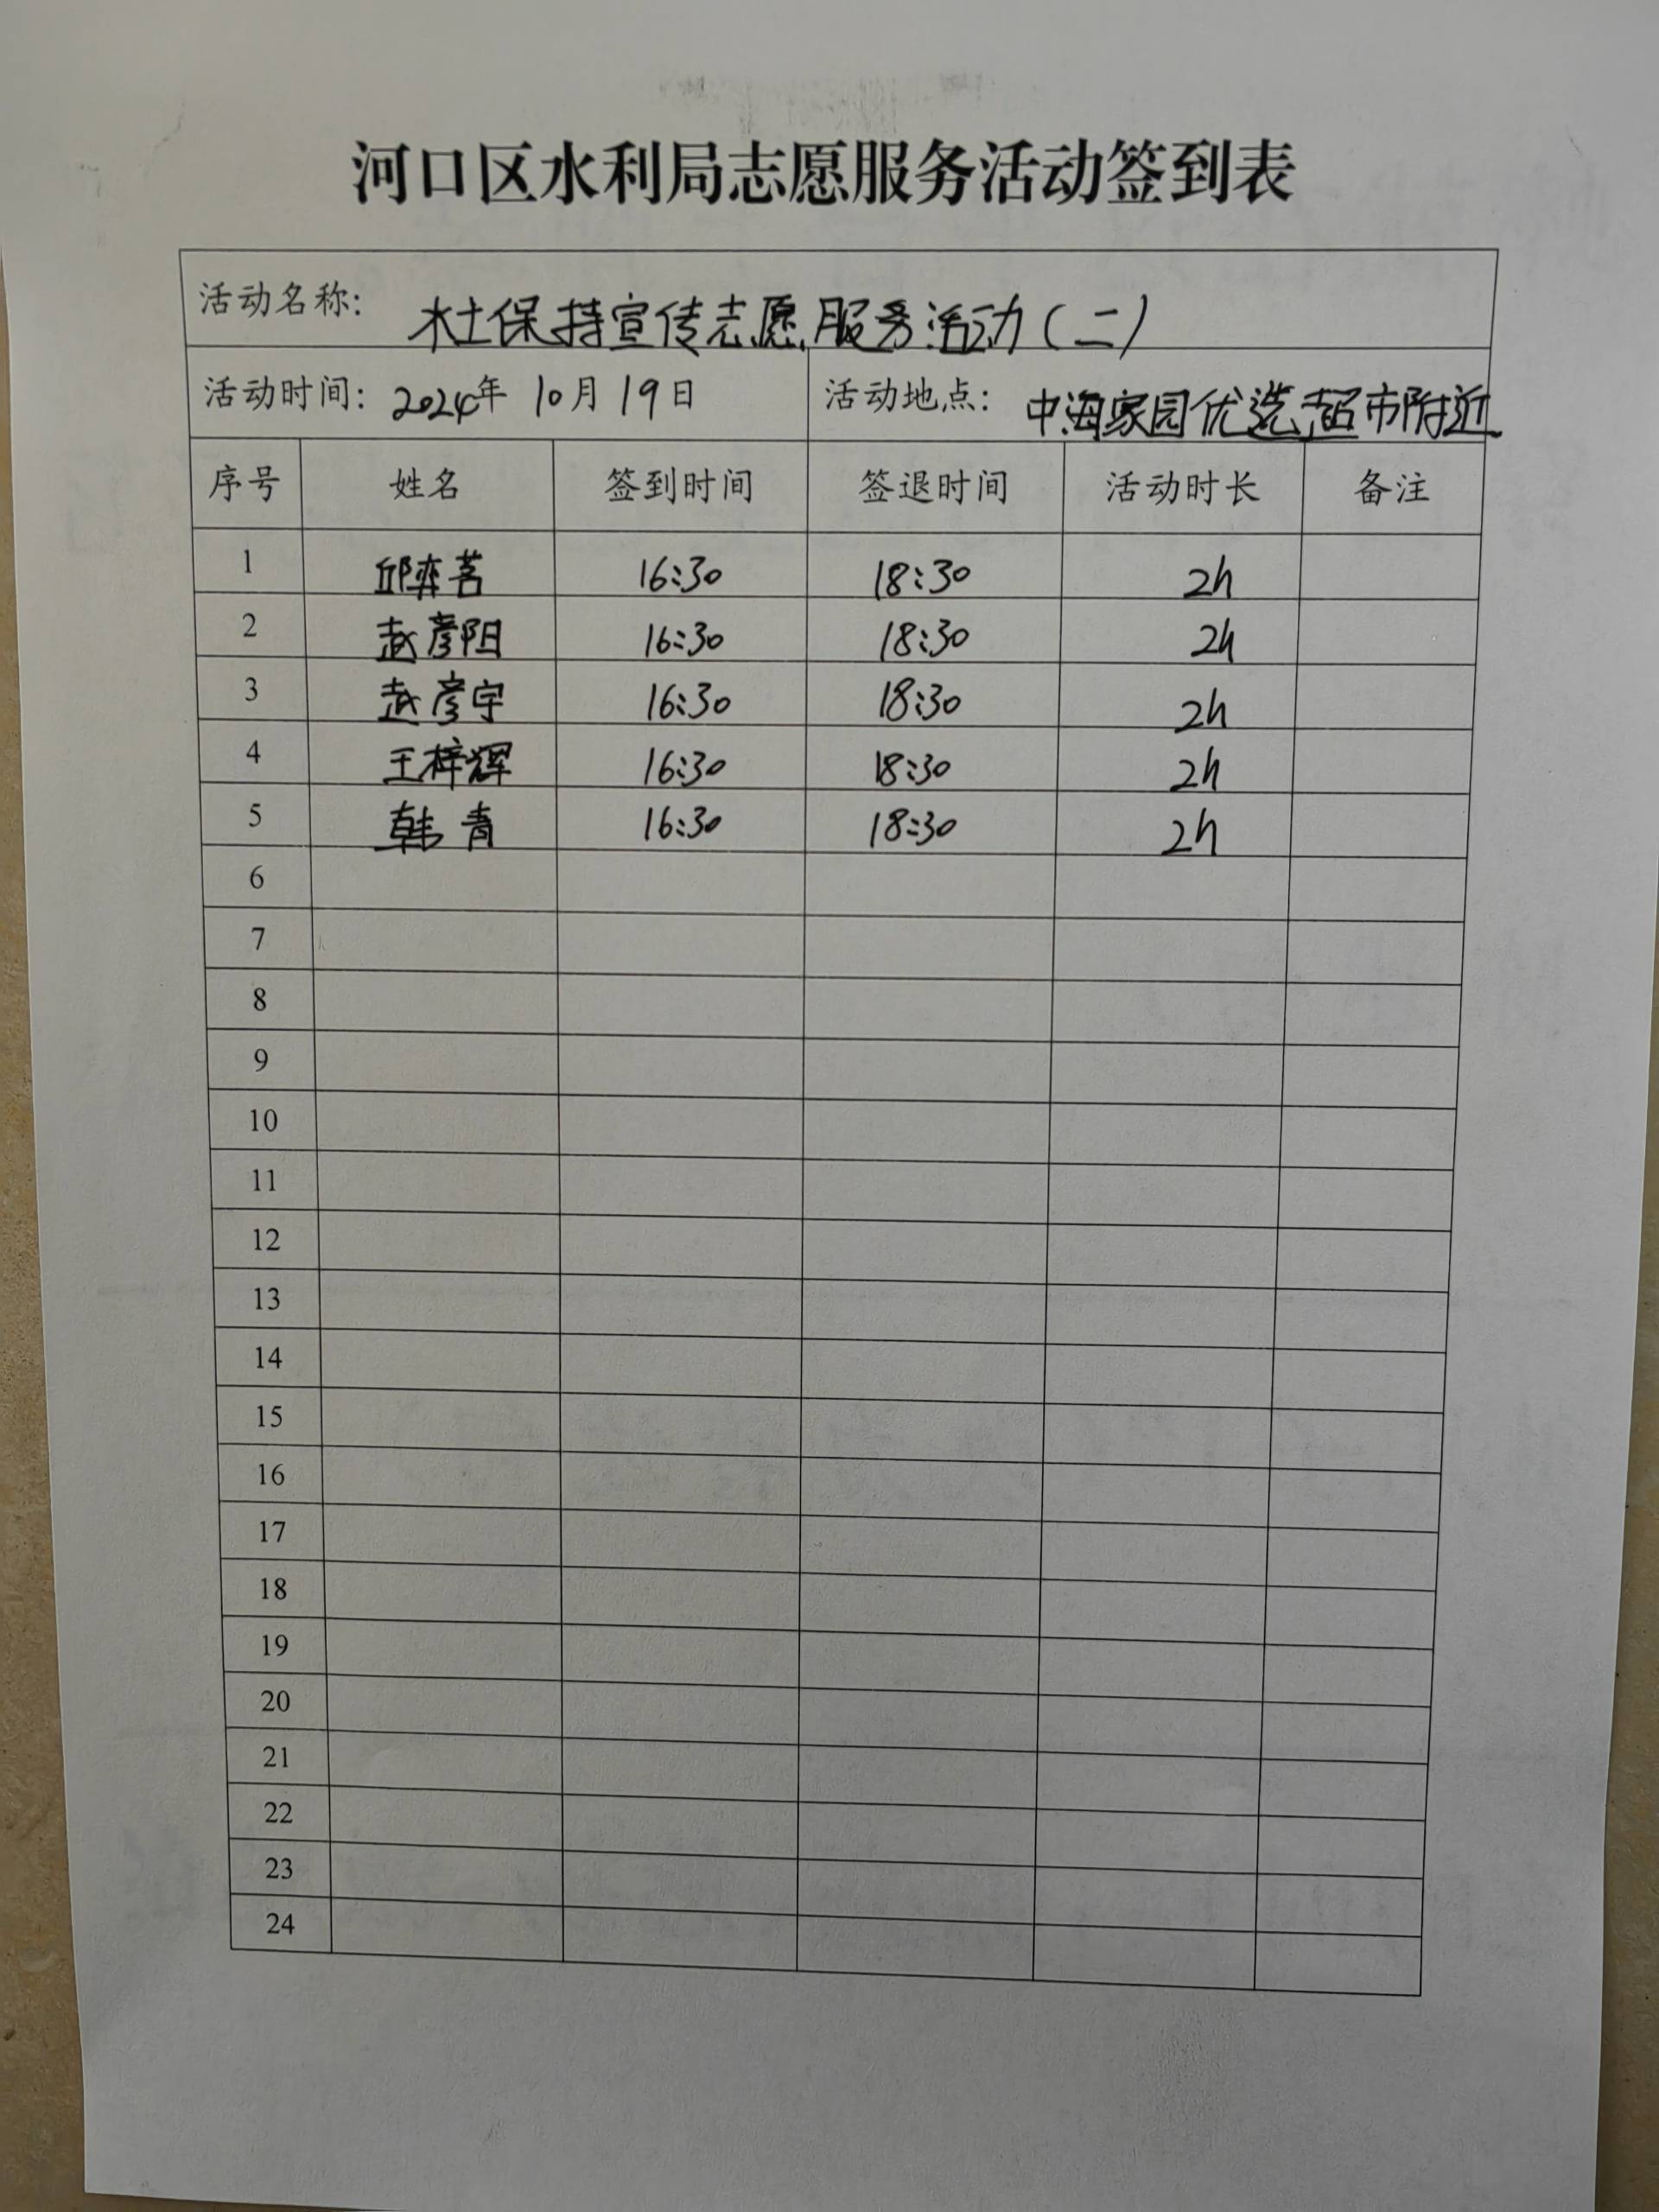 河口区水利局志愿服务活动签到表
活动名称: 水土保持宣传志愿服务活动(二)
活动时间: 2024年10月19日 活动地点: 中海家园优选超市附近
序号 姓名 签到时间 签退时间 活动时长 备注
1 邱弈茗 16:30 18:30 2h
2 赵彦阳 16:30 18:30 2h
3 赵彦宇 16:30 18:30 2h
4 王梓辉 16:30 18:30 2h
5 韩青 16:30 18:30 2h
6
7
8
9
10
11
12
13
14
15
16
17
18
19
20
21
22
23
24